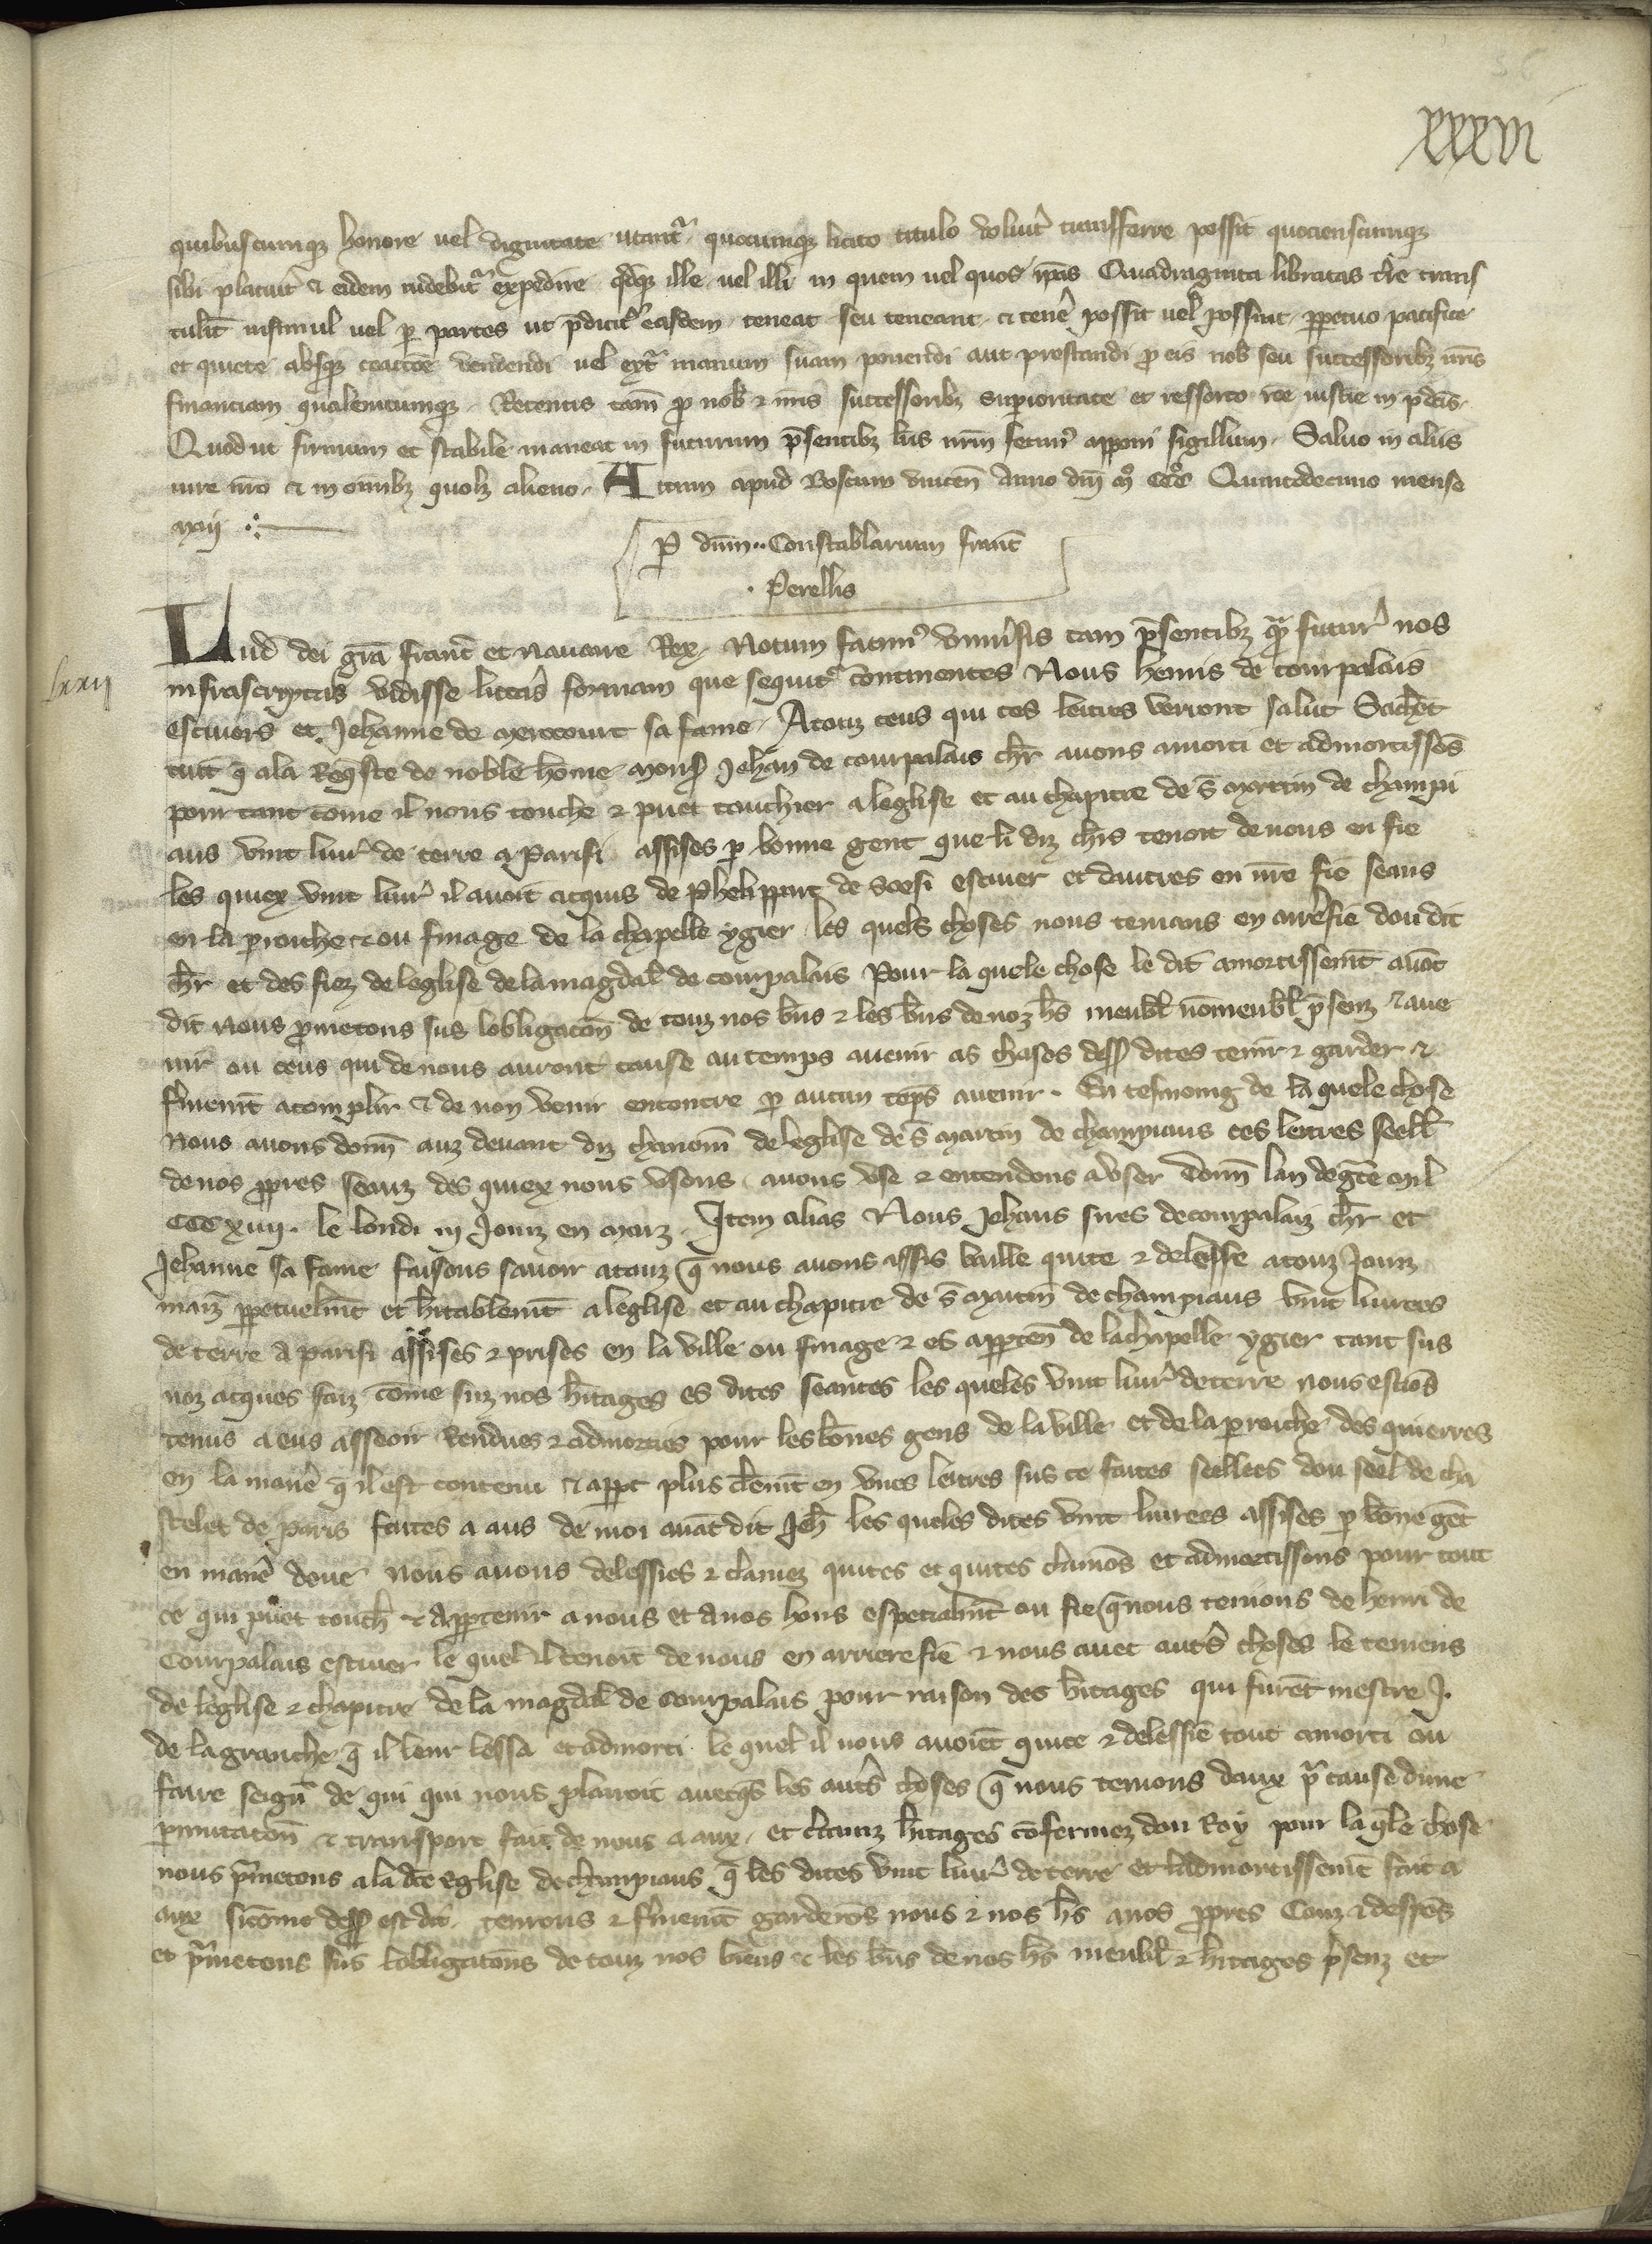 36
xxxvi
quibuscumq honore uel dignitate utant᷑ quocumq licito titulo voluit transferre possit quocienscumq
sibi placuit & eidem uidebit᷑ expedire qdq ille uel illi in quem uel quos ip̄as Quadraginta libratas tr̄e trans
tulit insimul uel ꝑ partes ut p̄dicit᷑ easdem teneat seu teneant & tene᷑ possit uel possint ꝑpetuo pacifice
et quiete absq coactōe vendendi uel ext᷑ manum suam ponendi aut prestandi ꝓ eis nob seu successoribꝫ nr̄is
financiam qualemcumq Retentis tam̄ ꝓ nob & nr̄is successoribꝫ superioritate et ressorto rōe iusticie in p̄dcīs
Quod ut firmum et stabile maneat in futurum p̄sentibꝫ lr̄is nr̄m fecimꝰ apponi sigillum Saluo in aliis
iure nr̄o & in om̄ibꝫ quolꝫ alieno Actum apud Boscum vincen̄ Anno dn̄i mͦ cccͦ Quintodecimo mense
maij
P dn̄m Constabularium franc̄
Perellis
lxxij
Lud dei grā franc̄ et nauarre Rex Notum facimꝰ vniu᷑sis tam p̄sentibꝫ q̄m futur᷑ nos
infrascriptas vidisse litteras formam que sequit᷑ continentes Nous henris de courpalais
escuiers et Jehanne de merrcourt sa fame Atouz ceus qui ces lettres verront salut Sachēt
tuit q̄ ala Requeste de noble hōme mons Jehan de courpalais chr̄ auons amorti et admortissōs
pour tant cōme il nous touche & puet touchier a leglise et au chapitre de s̄ martin de champi
aus vint liur᷑ de terre a Parisi assises ꝑ bonne gent que li diz chrs̄ tenoit de nous en fie
les quiex vint liur᷑ il auoit acquis de Phelippart de Soesi escuier et dautres en nr̄e fie seans
en la ꝑroiche & ou finage de la chapelle ygier les quels choses nous teniens en arr᷑efie dou dit
chr̄ et des fiez de leglise de la magdal᷑ de courpalais Pour la quele chose le dit amortissemt̄ auāt
dit nous ꝓmetons sus lobligacōn de touz nos bn̄s & les bn̄s de noz hrs̄ meubl᷑ nōmeubl᷑ p̄senz & aue
nir ou ceus qui de nous auront cause au temps auenir as choses dess dites tenir & garder &
fermemt̄ acomplir & de non venir encontre ꝑ aucun tēps auenir En tesmoing de la quele chose
Nous auons donn̄ auz deuant diz chanoin̄ de leglise de s̄ martin de champiaus ces lettres seell᷑
de nos ꝓpres seauz des quiex nous vsons auons vse & entendons a vser Donn̄ lan de grc̄e mil
CCC xiiij le lundi iij Jourz en marz Item alias Nous Jehans sires de courpalaiz chr̄ et
Jehanne sa fame faisons sauoir atouz q̄ nous auons assis baille quite & delesse atouz Jourz
maiz ꝑpetuelmt̄ et hr̄itablemt̄ a leglise et au chapitre de s̄ martin de champiaus vint liurees
de terre a parisi assises & prises en la ville ou finage & es apparten̄ de la chapelle ygier tant sus
noz acques faiz cōme suz nos hr̄itages es dites seantes les queles vint liur᷑ de terre nous estiōs
tenus a eus asseoir Rendues & admorties pour les bōnes gens de la ville et de la perroiche des quierres
en la manie᷑ q̄ il est contenu & appt plus cleremt̄ en vnes lettres sus ce faites seellees dou seel de cha
stelet de paris faites a aus de moi auāt dit Jeh̄ les queles dites vint liurees assises ꝑ bōne gēt
en manie᷑ deue nous auons delessies & clamez quites et quites clamōs et admortissons pour tout
ce qui puet touch᷑ & appartenir a nous et a nos hoirs especialmt̄ ou fie q̄ nous tenions de henri de
Courpalais escuier le quel il tenoit de nous en arrierefie & nous auec aut᷑s choses le teniens
de leglise & chapitre de la magdal᷑ de courpalais pour raison des hr̄itages qui furēt mestre J
de la granche q̄ il leur lessa et admorti le quel il nous auoiēt quite & delessie tout amorti ou
faire seign᷑ de qui qui nous plairoit auecqs les aut᷑s choses q̄ nous tenions daux p̄ cause dune
ꝑmutacōn & transport fait de nous a aux et certainz hr̄itages cōfermez dou Roy pour la q̄le chose
nous ꝓmetons a la dc̄e eglise de champiaus q̄ les dites vint liur᷑ de terre et ladmortissemt̄ fait a
aux sicōme dess est dit tenrons & fermemt̄ garderōs nous & nos hrs̄ a nos ꝓpres Couz & despēs
et ꝓmetons sus lobligacōns de touz nos biens & les bn̄s de nos hrs̄ meubl᷑ & hr̄itages p̄senz et